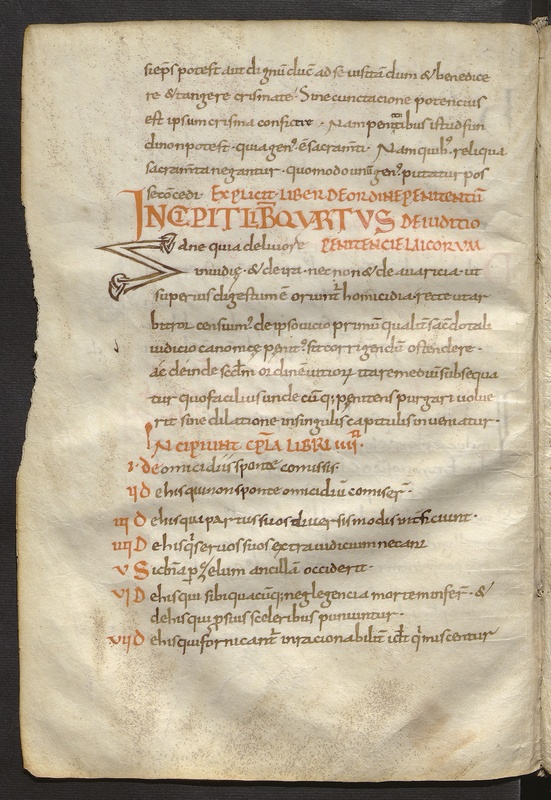 si eps potest aut dignū duc̄ ad se visitandum & benedice
re & tangere crismate. Sine cunctacione potencius
est ipsum crisma conficere. Nam penitentibus istud fieri
di non potest. quia gen ē sacramti. Nam quib; reliqua
sacramta negantur. quomodo unū gen putatur pos
se concedi. Explicit LIBER DE ORDINE PENITENTIŪ
INCEPIT LIB QVARTVS DE IUDITIO
Sane quia de livore PENITENCIE LAICORVM
invidię. & de ira. nec non & de avaricia. ut
superius digestum ē oriunt homicidia. recte utar
bitror censuim; de ipso vicio primū qualit sac̄dotali
iudicio canonice penit; sit corrigendū ostendere.
ac deinde scdm ordinē vitiorū ita remedium subsequa
tur quo facilius unde cūq; penitens purgari volue
rit sine dilatione in singulis capitulis inveniatur.
INCIPIUNT CPLA LIBRI IIII.
I. De omicidiis sponte comissis.
II De his qui non sponte omicidiū comiser.
III De his qui partus suos diversis modis intficiunt.
IIII De his q servos suos extra iudicium necant
V Si dn̄a p zelum ancillā occiderit.
VI De his qui sibi quacūq; neglegencia mortem infer. &
de his qui p suis sceleribus puniuntur.
VII De his qui fornicant inracionabilit id ē q miscentur